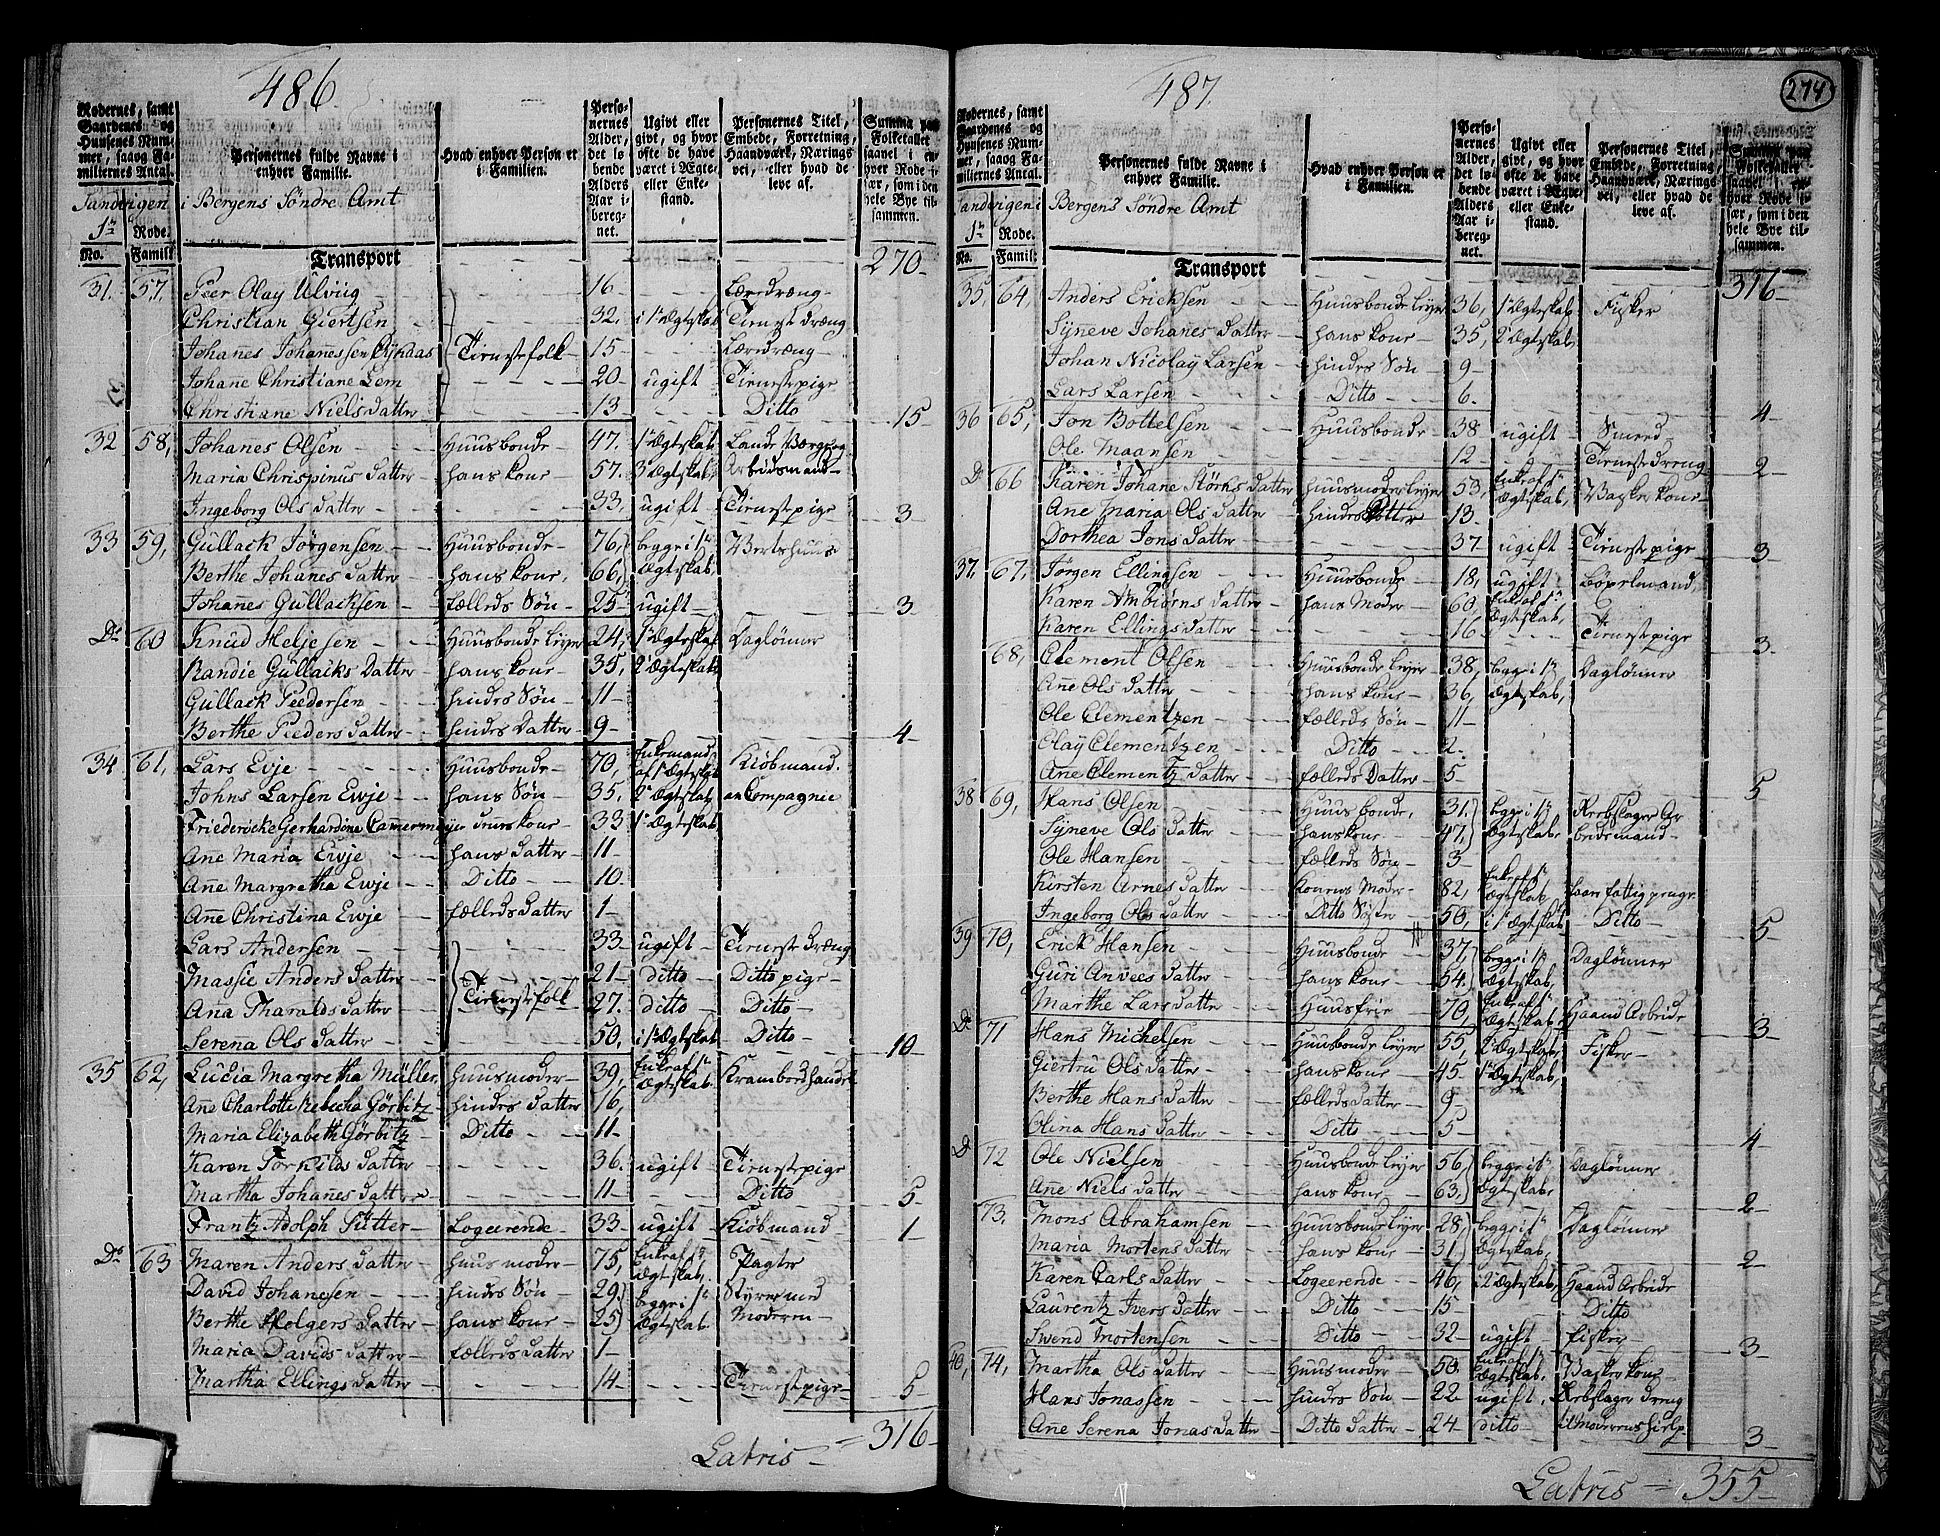 486
Rodernes, samt Gaardenes og Huusenes Nummer, saaog Familiernes Antal.
Personernes fulde Navne i enhver Familie.
Hvad enhver Person er i Familien.
Personernes Alder, det løbende Alders Aar iberegnet.
Ugivt eller givt, og hvor ofte de have været i Ægte- eller Enkestand.
Personernes Titel, Embede, Forretning, Haandværk, Næringsvei, eller hvad de leve af.
Summa paa Folketallet saavel i enhver Rode især, som i den hele Bye tilsammen.
Sandvigen i Bergens Søndre Amt
1te Rode.
No. Famili
Transport 270
31. 57, Peer Olay Ulviig 16 Læredræng
Christian Giertsen 32, i 1te Ægteskab Tienestdræng
Johañes Johañessen Tienestefolk 15 Læredræng
Johañe Christiane Lem 20 ugift Tienestepige
Christiane Nielsdatter 13 Ditto 15
32 58, Johanes Olsen Huusbonde 47. 1te Ægteskab
Maria Chrispinus datter hans kone 57. 3de Ægteskab Arbeidsmand
Ingeborg Ols datter 33, ugift Tienestepige 3
33 59, Gullack Jørgensen Huusbonde 76, begge i 1te Vertshuus
Berthe Johanes datter hans kone, 66, Ægteskab,
Johañes Gullacksen fælleds Søn 25 ugift 3
Do 60 Knud Heljesen Huusbonde leyer 24, 1te Ægteskab Daglønner
Randie Gullacks Datter hans kone 35, 2de Ægteskab
Gullack Peedersen hindes Søn 11
Berthe Peeders datter hindes Datter 9 4
34 61, Lars Evje Huusbonde 70, Enkemand af 1te Ægteskab Kiøbmand.
Johns Larsen Ewje hans Søn 35, 2de Ægteskab en Compagnie
Friedericke Gerhardina Camermeyer dennes kone 33 1te Ægteskab,
Ane Maria Ewje hans datter 11
Añe Margretha Ewje Ditto 10
Añe Christina Ewje fælleds datter 1
Lars Andersen 33 ugift Tienest dræng
Massie Anders datter Tienestefolk 21 ditto Ditto pige
Ana Tharalds datter 27. ditto Ditto
Serena Ols datter 50, i 1te Ægteskab Ditto 10
35 62, Lucia Margretha Müller, Huusmoder 39, Enke af 1te Ægteskab Kramboehandel
Ane Charlotte Rebecha Görbitz hindes datter 16,
Maria Elizabeth Görbitz Ditto 11
Karen Torkilds datter 36. ugift Tienestepige
Martha Johañes datter 11 Ditto 5
Frantz Adolph Sutter Logeerende 33 ugift Kiøbmand 1
Do 63 Maren Anders datter huusmoder 75, Enke af 1te Ægteskab. Pagter
David Johanesen hindes Søn 29, begge i 1te Styrer med
Berthe Holgers datter hans kone 25 Ægteskab Moderen
Maria Davids datter fælleds datter 1
Martha Ellings datter 14 Tienestepige 5
Latris = 316
487.
274
Rodernes, samt Gaardenes og Huusenes Nummer, saaog Familiernes Antal.
Personernes fulde Navne i enhver Familie.
Hvad enhver Person er i Familien.
Personernes Alder, det løbende Alders Aar iberegnet.
Ugivt eller givt, og hvor ofte de have været i Ægte- eller Enkestand.
Personernes Titel, Embede, Forretning, Haandværk, Næringsvei, eller hvad de leve af.
Summa paa Folketallet saavel i enhver Rode især, som i den hele Bye tilsammen.
Sandvigen i Bergens Søndre Amt
1te Rode.
No. Famili
Transport 316
35, 64, Anders Ericksen Huusbonde leyer 36, 1te Ægteskab Fisker
Syneve Johañes datter hans kone 35, 2de Ægteskab,
Johan Nicolay Larsen hindes Søn 9
Lars Larsen Ditto 6. 4
36 65, Jon Bottelsen Huusbonde 38 ugift Smed
Ole Moansen 12 Tienestedreng 2
Do 66 Karen Johane Størks datter huusmoder leyer 53, Enke af 1te Ægteskab, Vasker kone
Ane Maria Ols datter hindes Datter 13.
Dorthea Jons datter 37 ugift Tienestepige 3
37. 67, Jørgen Ellingsen Huusbonde 18, ugift
Karen Ambiørns datter hans Moder 60, Enke af 1te Ægteskab,
Karen Ellings datter 16 Tienestepige 3
68, Clement Olsen Huusbonde leyer 38, begge i 1te Daglønner
Añe Ols datter hans kone 36, Ægteskab,
Ole Clementzen fælleds Søn 11
Olay Clementzen Ditto 2
Ane Clementz datter fælleds Datter 5 5
38 69, Hans Olsen Huusbonde, 31. begge i 1te Reebslager Ar
Syneve Ols datter hans kone 47. Ægteskab, beidsmand
Ole Hansen fælleds Søn 3
Kirsten Arnes datter Konens Moder 82, Enke af 1te Ægteskab, faar fattig penge
Ingeborg Ols datter Ditto Søster 50, i 1te Ægteskab Ditto 5
39 70, Erick Hansen Huusbonde 37, begge i 1te Daglønner
Guri Anvees datter hans kone 54. Ægteskab,
Marthe Lars datter Huusfrie 70, Enke af 1te Ægteskab, Haand Arbeide 3
Do 71 Hans Michelsen Huusbonde leyer 55, 2de Ægteskab, Fisker
Giertru Ols datter hans kone 45. 1te Ægteskab,
Berthe Hans datter fælleds datter 9
Olina Hans datter Ditto 5 4
Do 72 Ole Nielsen Huusbonde leyer 56, begge i 1te Daglønner
Añe Niels datter hans kone 63. Ægteskab, 2
73. Mons Abrahamsen Huusbonde leyer 28, begge i 1te Daglønner
Maria Mortens datter hans kone 31. Ægteskab, 2
Karen Carls datter Logeerende 46, i 2de Ægteskab, Haand Arbeide
Laurentz Ivers datter Ditto 15 Ditto
Swend Mortensen Ditto 32 ugift fisker 3
40, 74, Martha Ols datter Huusmoder 50. Enke af 1te Ægteskab, Vasker kone
Hans Jonassen hindes Søn 22 ugift, Reebslager dreng
Ane Serena Jonas datter Ditto datter 24 ditto til Moderens hielp 3
Latris = 355